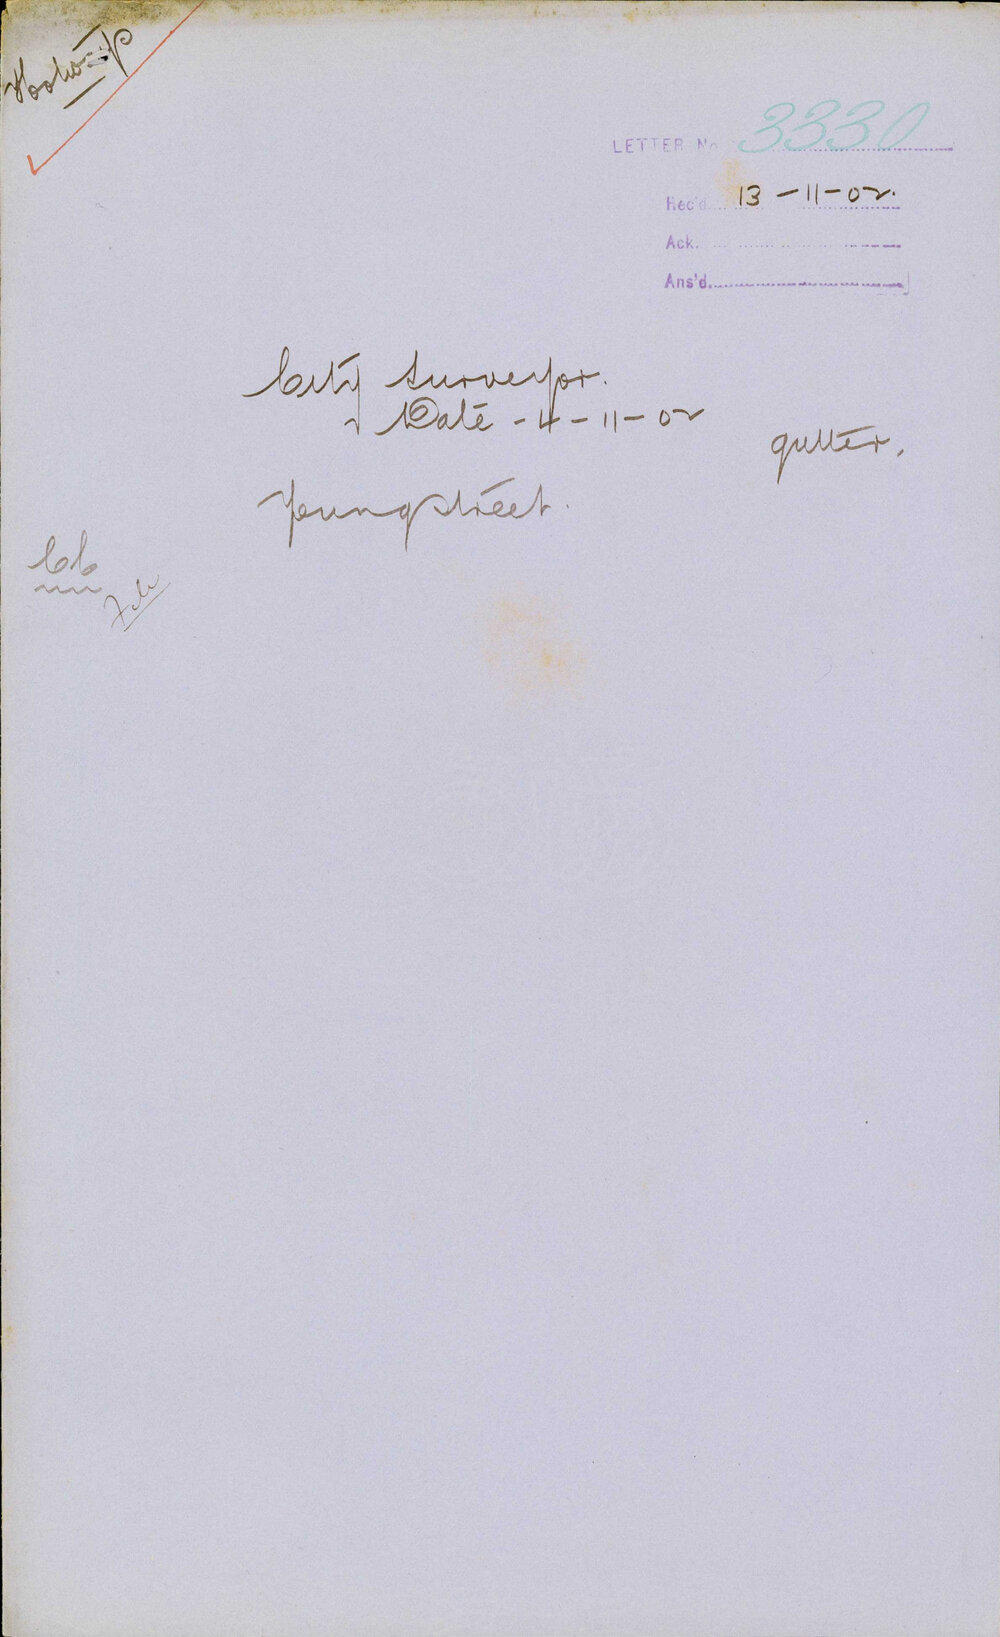 LETTER No 3330
Rec'd. 13-11-02.
Ack.
Ans'd.
City Surveyor.
Date - 4-11-02
gutter.
Young street.
File